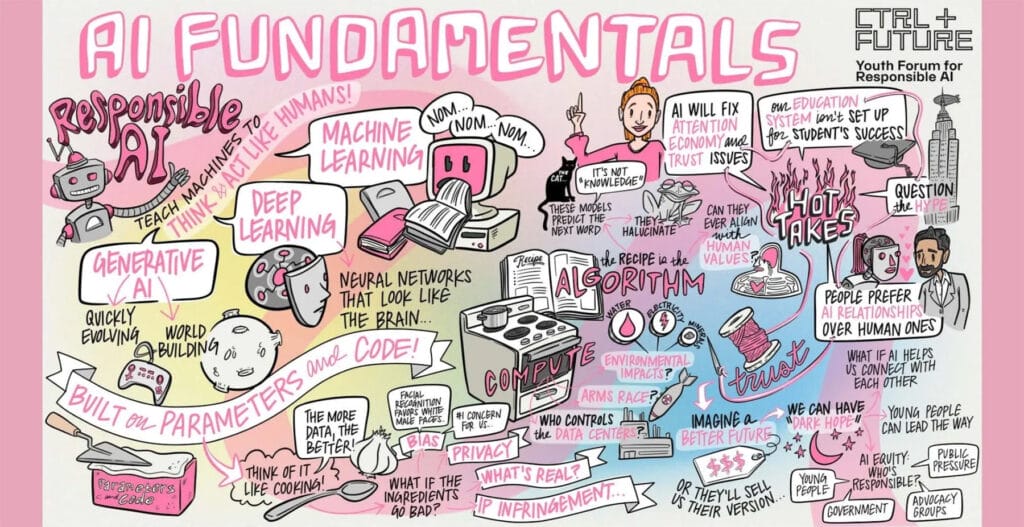 AI FUNDAMENTALS
CTRL +
FUTURE
Youth Forum for
Responsible AI
Responsible
AI
TEACH MACHINES TO
THINK & ACT LIKE HUMANS!
MACHINE
LEARNING
NOM...
NOM...
NOM...
DEEP
LEARNING
GENERATIVE
AI
QUICKLY
EVOLVING
WORLD
BUILDING
NEURAL NETWORKS
THAT LOOK LIKE
THE BRAIN...
BUILT on PARAMETERS and CODE!
Parameters
and Code
THINK OF IT
LIKE COOKING!
THE MORE
DATA, THE
BETTER!
FACIAL
RECOGNITION
FAVORS WHITE
MALE FACES...
BIAS
#1 CONCERN
FOR US...
PRIVACY
WHAT IF THE
INGREDIENTS
GO BAD?
WHAT'S REAL?
IP INFRINGEMENT...
THE
CAT...
IT'S NOT
"KNOWLEDGE"
THESE MODELS
PREDICT THE
NEXT WORD
THEY
HALUCINATE
CAN THEY
EVER ALIGN
with
HUMAN
VALUES?
AI WILL FIX
ATTENTION
ECONOMY and
TRUST ISSUES
our EDUCATION
SYSTEM isn't SET UP
for STUDENT'S SUCCESS
HOT
TAKES
QUESTION
the HYPE
PEOPLE PREFER
AI RELATIONSHIPS
OVER HUMAN ONES
Recipe
the RECIPE is the
ALGORITHM
COMPUTE
WATER
ELECTRICITY
MINERALS
ENVIRONMENTAL
IMPACTS?
ARMS RACE?
WHO CONTROLS
the DATA CENTERS?
trust
IMAGING a
BETTER FUTURE
$$$
OR THEY'LL SELL
US THEIR VERSION...
WE CAN HAVE
"DARK HOPE"
WHAT IF AI HELPS
US CONNECT WITH
EACH OTHER
YOUNG PEOPLE
CAN LEAD THE WAY
AI EQUITY:
WHO'S
RESPONSIBLE?
PUBLIC
PRESSURE
YOUNG
PEOPLE
GOVERNMENT
ADVOCACY
GROUPS